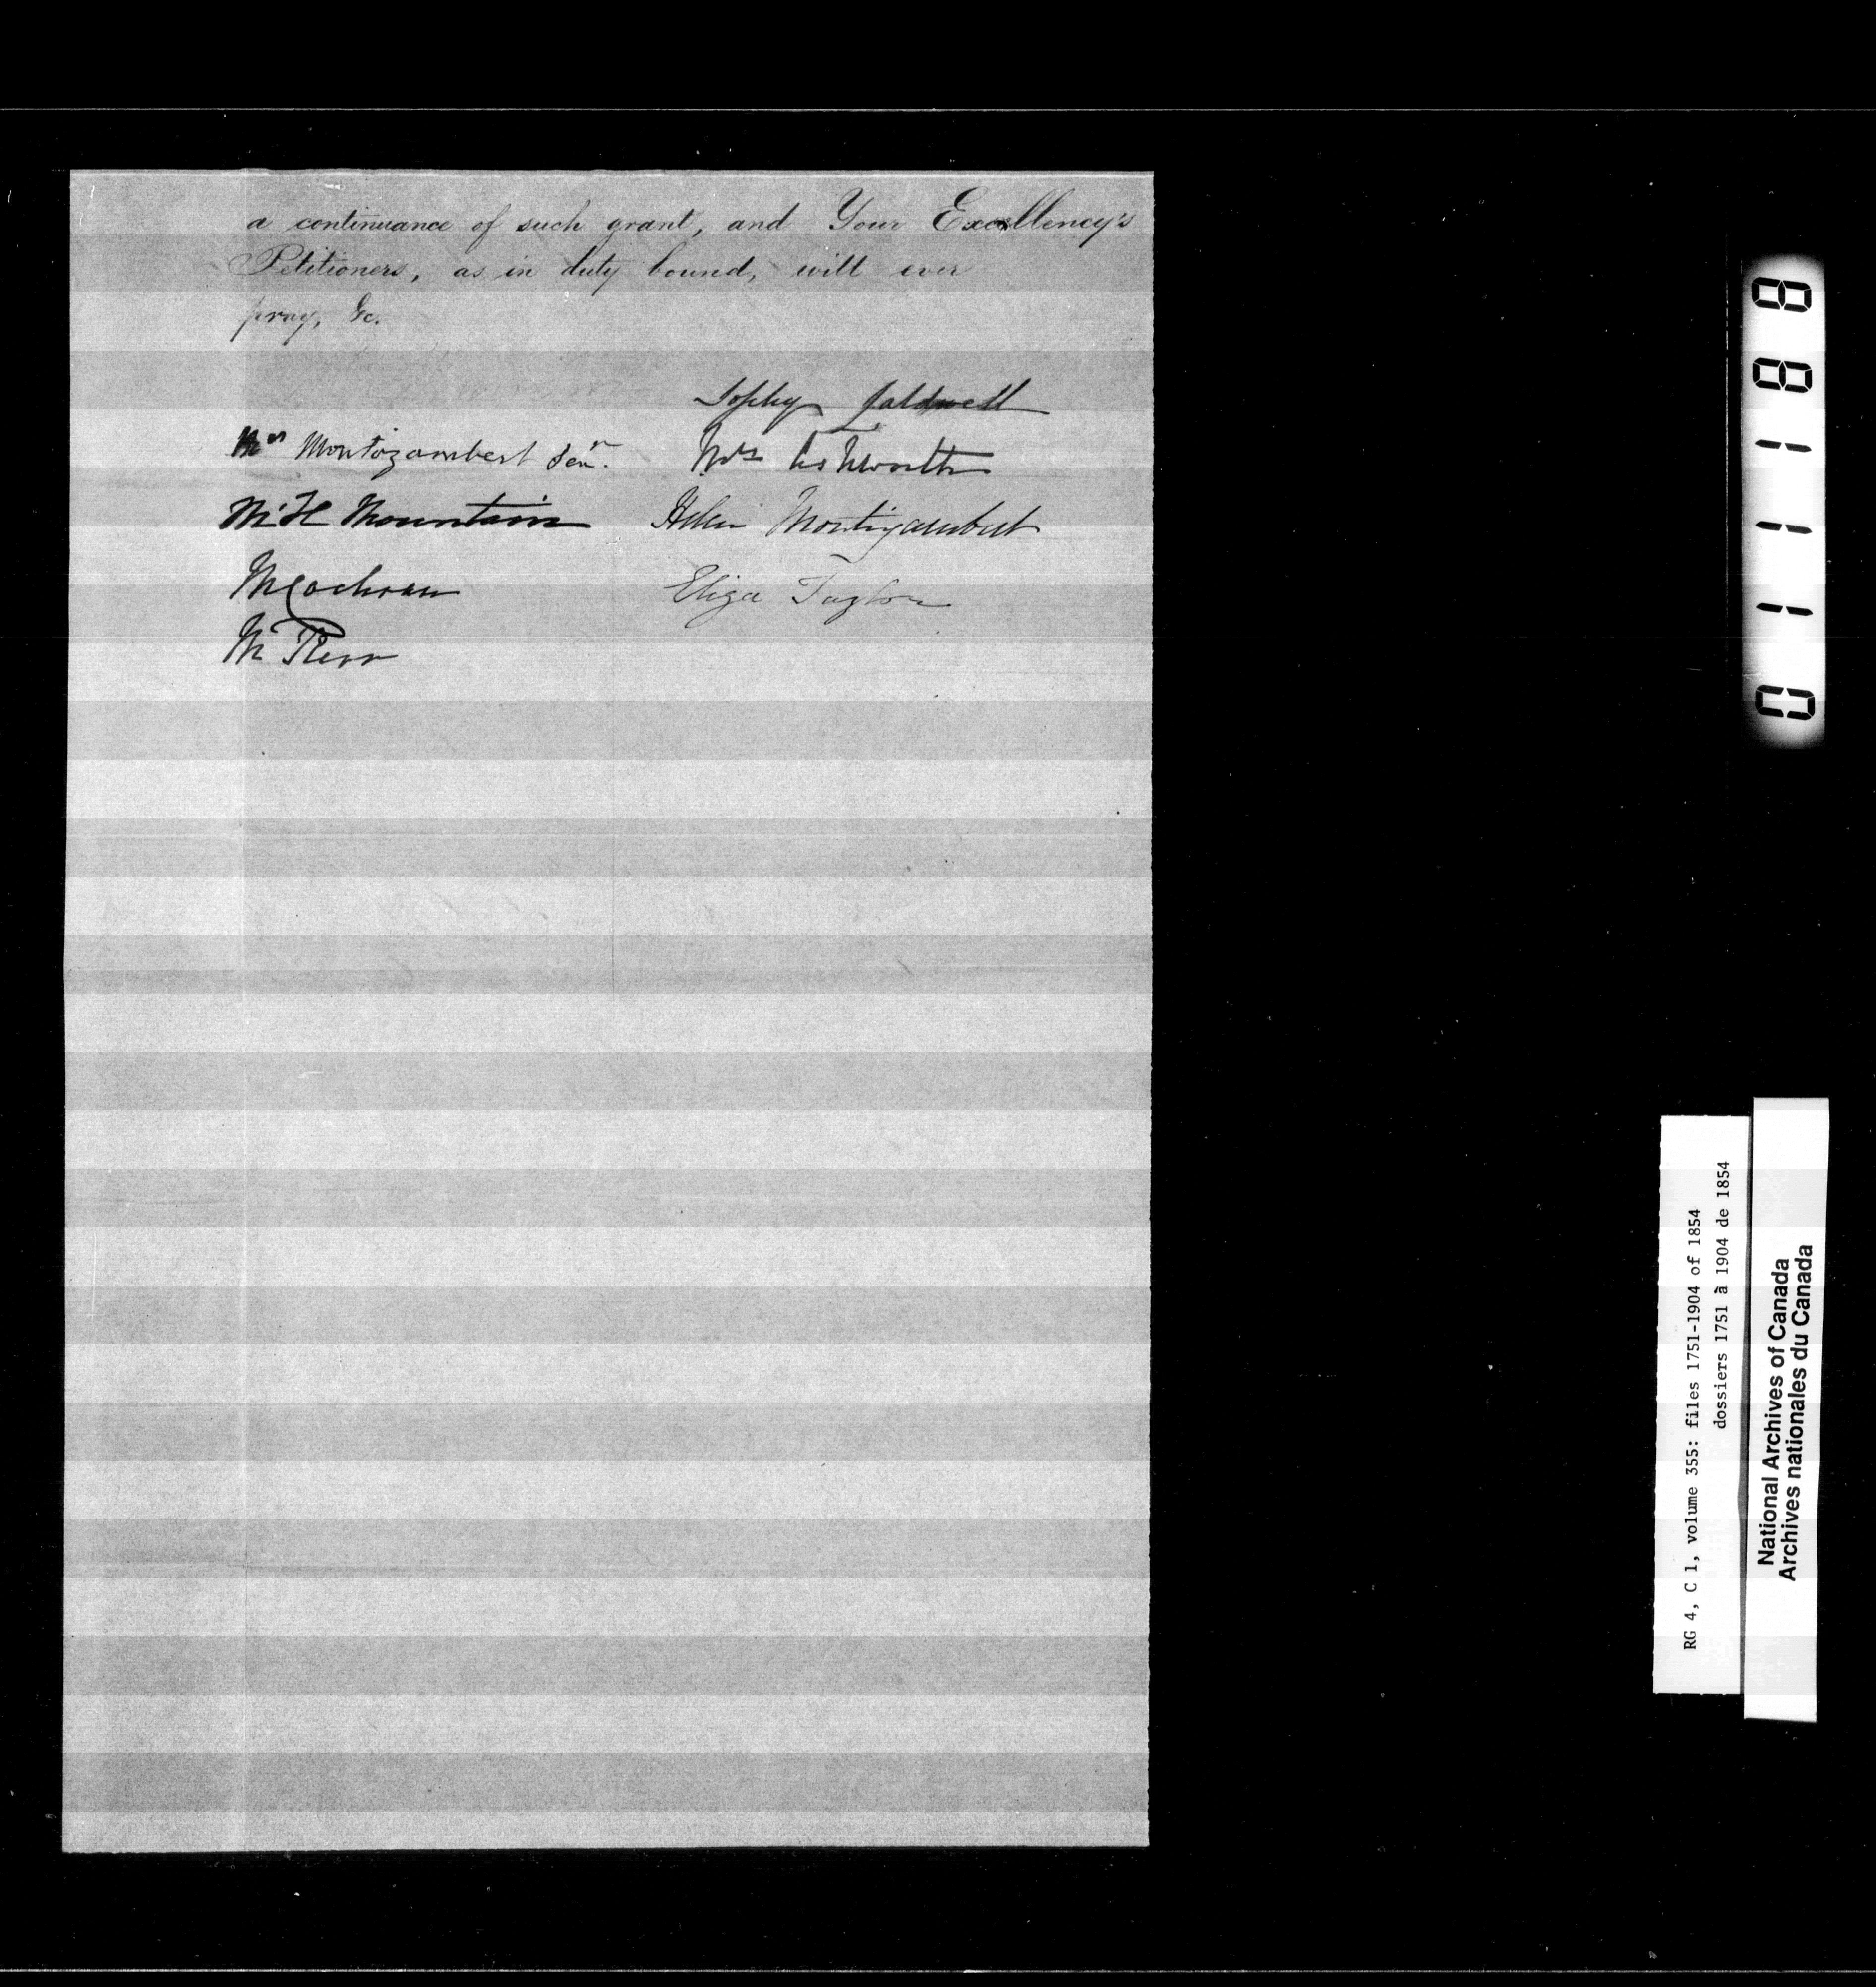 a continuance of such grant, and Your Excellency's
Petitioners, as in duty bound, will ever
pray, &c.
Sophy Caldwell
Mrs Montizambert Senr.
Mrs Ashworth
M H Mountain
Helen Montizambert
M Cochran
Eliza Taylor
M
011188
RG 4, C 1, volume 355: files 1751-1904 of 1854
dossiers 1751 à 1904 de 1854
National Archives of Canada
Archives nationales du Canada